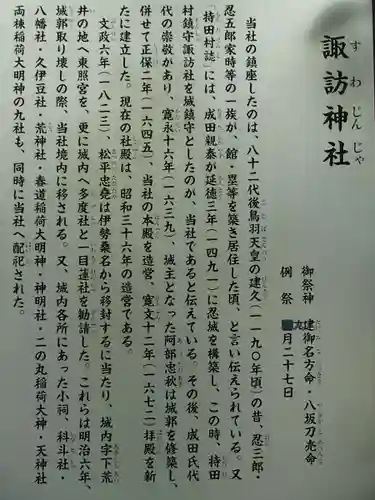 諏訪神社
すわじんじゃ
御祭神　建御名方命・八坂刀売命
例祭　九月二十七日
当社の鎮座したのは、八十二代後鳥羽天皇の建久（一一九〇年頃）の昔、忍三郎・
忍五郎家時等の一族が、館・塁等を築き居住した頃、と言い伝えられている。又
「持田村誌」には、成田親泰が延徳三年（一四九一）に忍城を構築し、この時、持田
村鎮守諏訪社を城鎮守としたのが、当社であると伝えている。その後、成田氏代
代の崇敬があり、寛永十六年（一六三九）、城主となった阿部忠秋は城郭を修築し、
併せて正保二年（一六四五）、当社の本殿を造営、寛文十二年（一六七二）拝殿を新
たに建立した。現在の社殿は、昭和三十六年の造営である。
文政六年（一八二三）、松平忠堯は伊勢桑名から移封するに当たり、城内字下荒
井の地へ東照宮を、更に城内へ多度社と一目蓮社を勧請した。これらは明治六年、
城郭取り壊しの際、当社境内に移される。又、城内各所にあった小祠、科斗社・
八幡社・久伊豆社・荒神社・春道稲荷大明神・神明社・二の丸稲荷大神・天神社
両棟稲荷大明神の九社も、同時に当社へ配祀された。